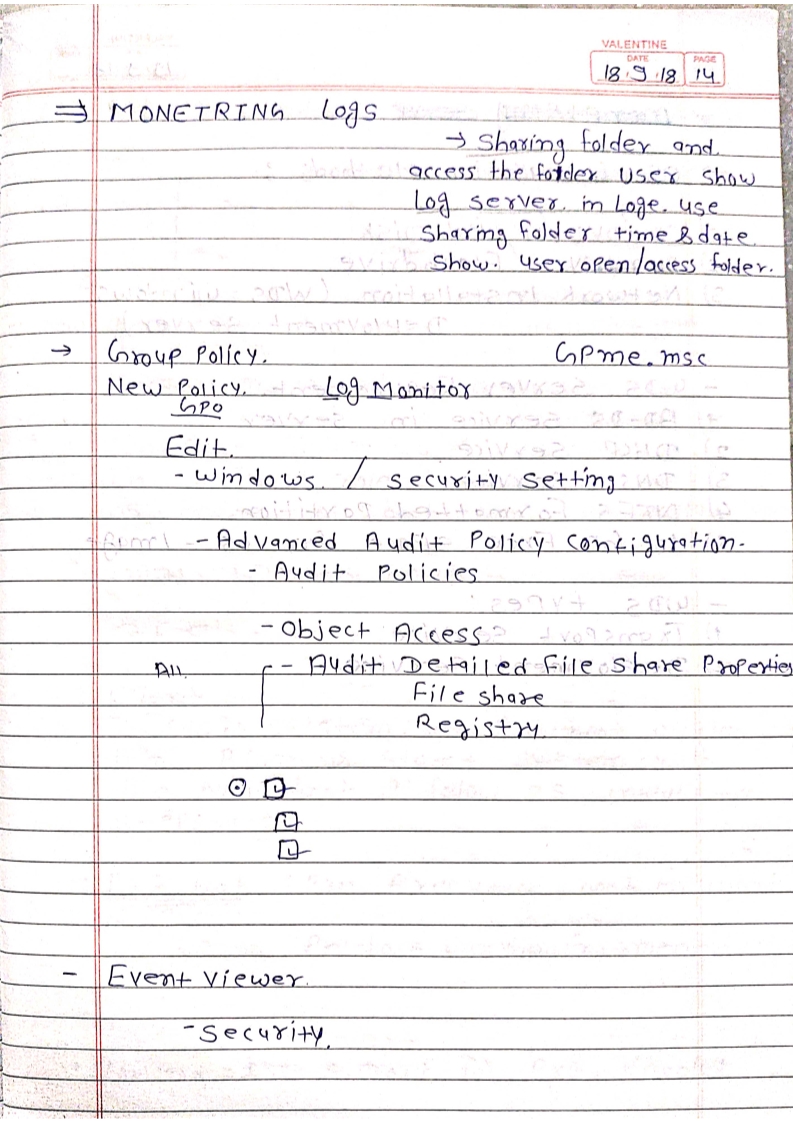 VALENTINE
DATE PAGE
18.9.18 14
⇒ MONETRING Logs
→ Sharing folder and
access the folder User show
Log server. in Loge. use
Sharing folder time & date
Show. user open/access folder.
→ Group Policy. GPme.msc
New Policy. Log Monitor
GPO
Edit.
- Windows. / security setting
- Advanced Audit Policy configuration.
- Audit Policies
- Object Access
All - Audit Detailed File Share Properties
File share
Registry
- Event Viewer.
- Security.